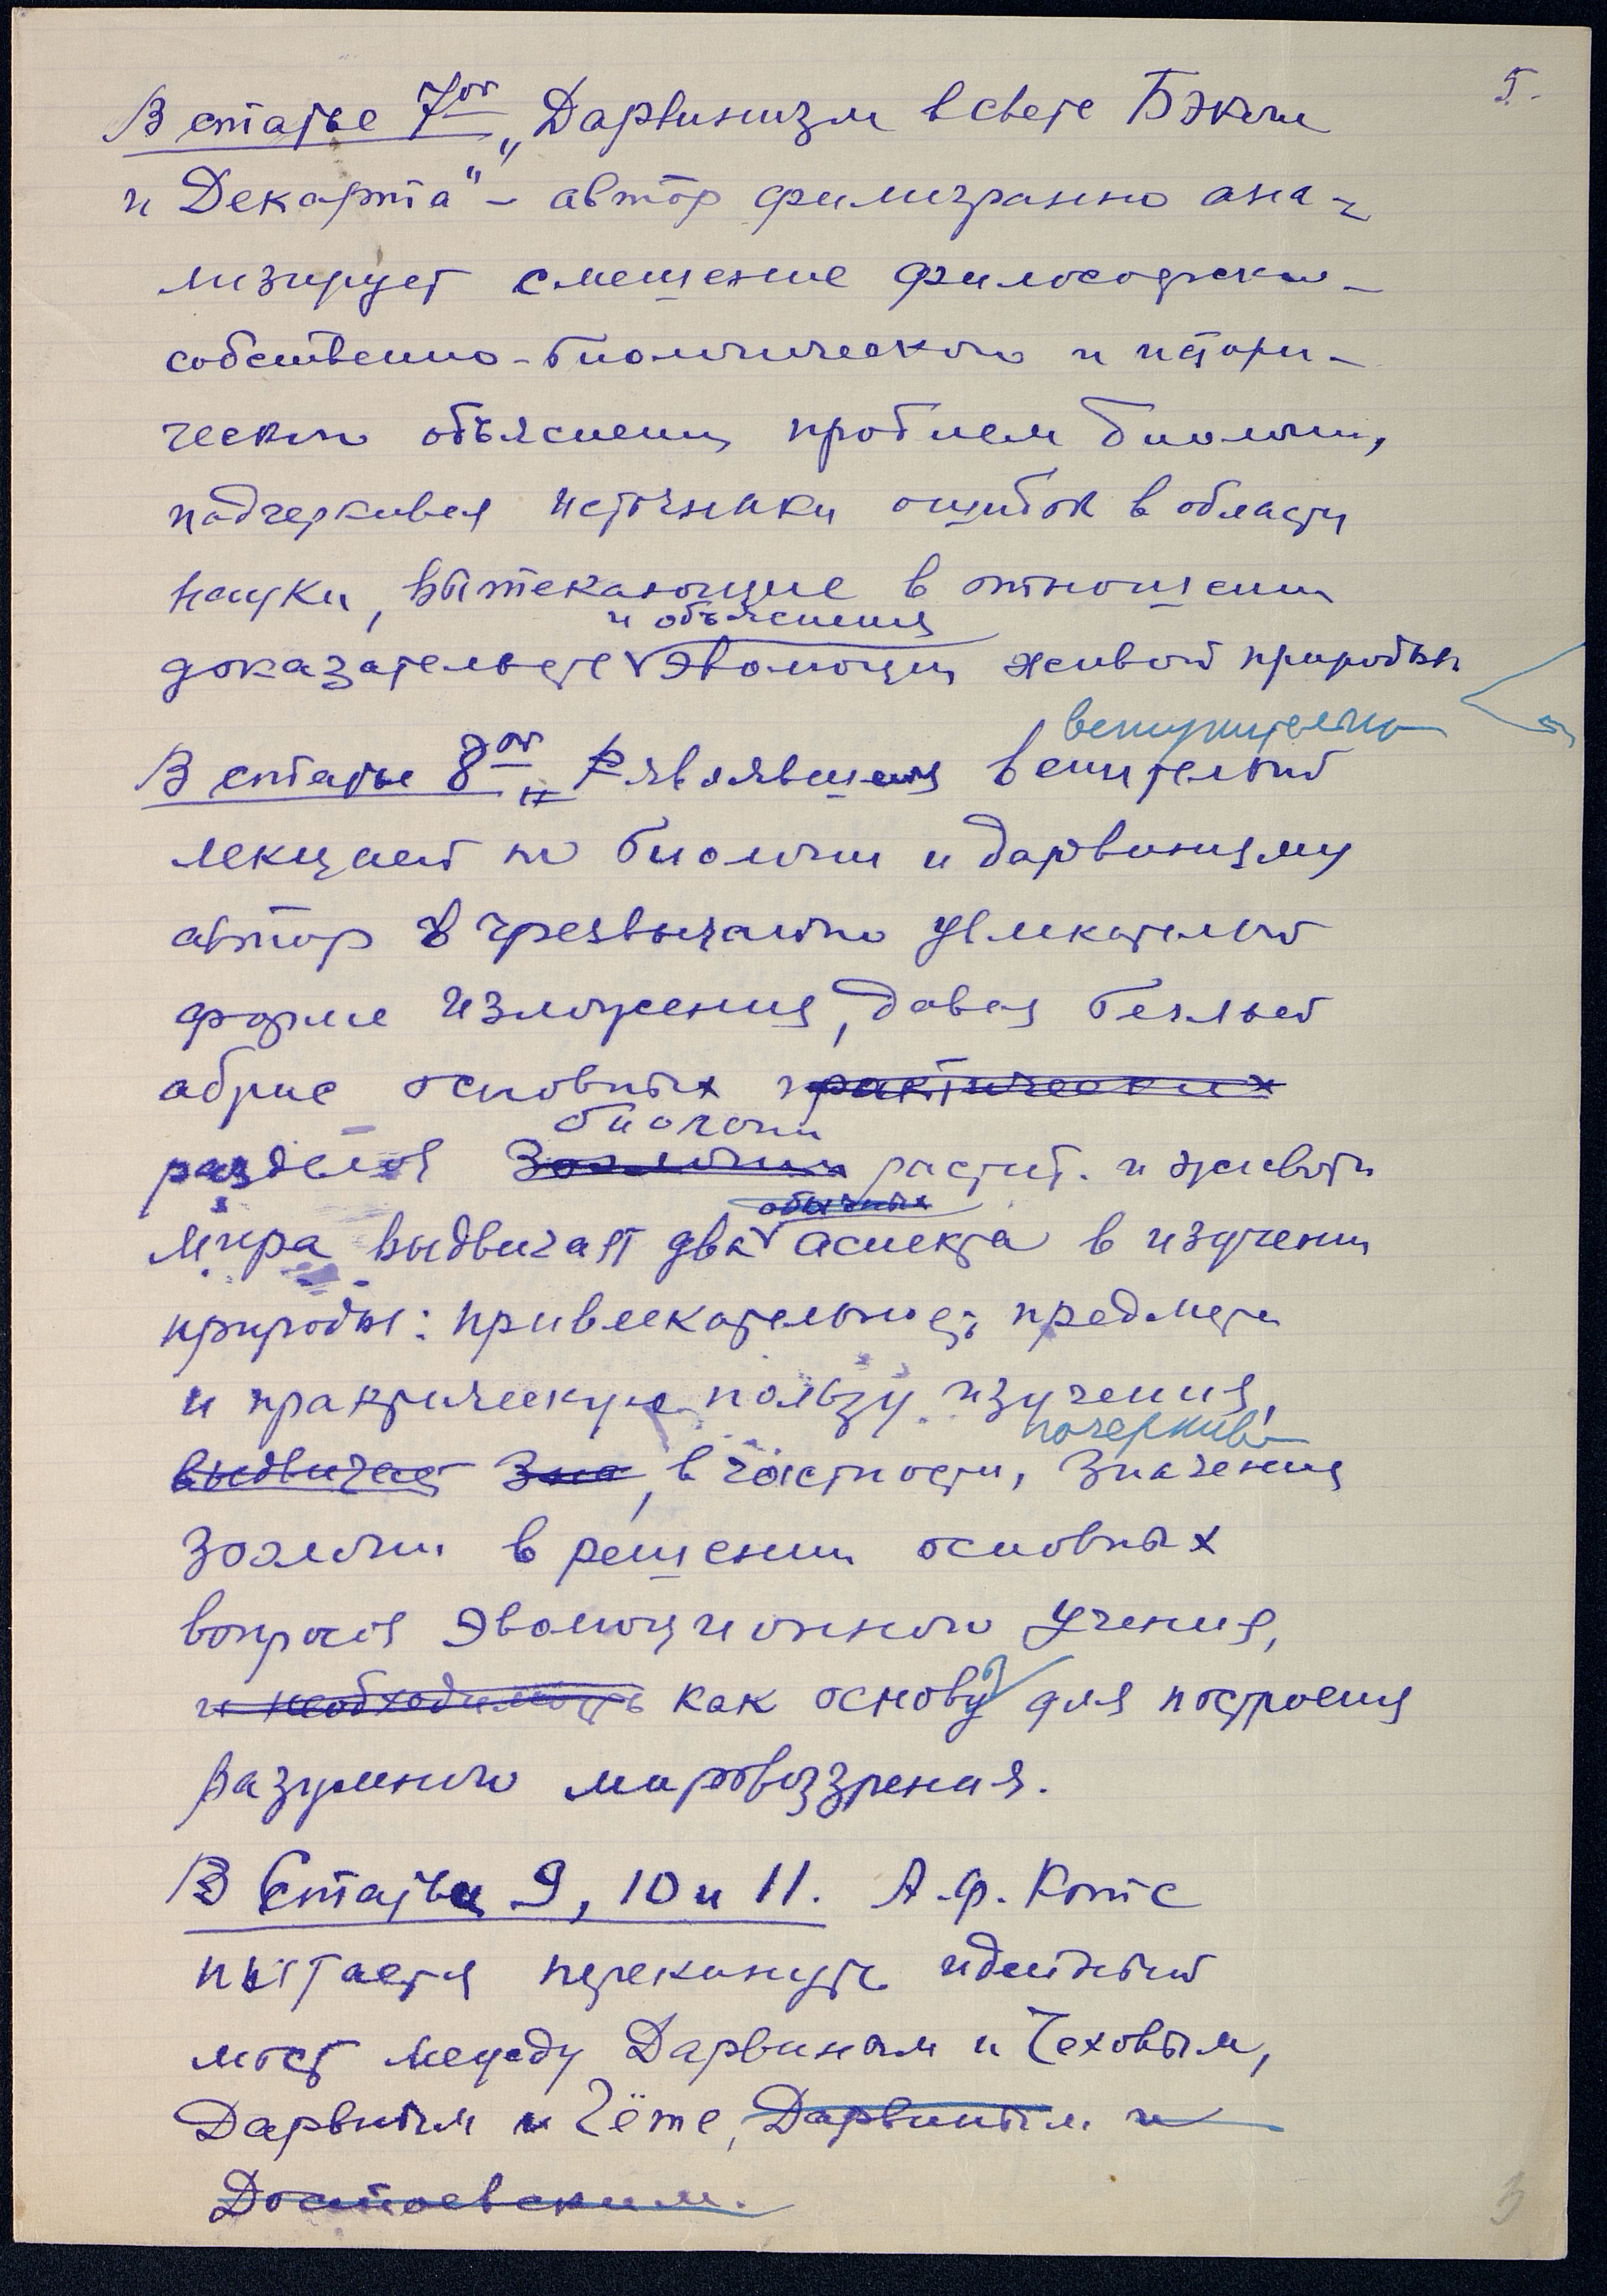 5.
В статье 7ой „Дарвинизм в свете Бэкона
и Декарта" – автор филигранно ана-
лизирует смешение философско-
собственно-биологического и истори-
ческого объяснения проблем биологии,
подчеркивая источники ошибок в области
науки, вытекающие в отношении
и объяснения
доказательств эволюции живой природы
вступительно
В статье 8ой „ являвшейся вступительной
лекцией по биологии и дарвинизму
автор в чрезвычайно увлекательной
форме изложения, давая беглый
абрис основных практических
биологии
разделов Зоологии растит. и животн
мира выдвигает два обычных аспекта в изучении
природы: привлекательность предмета
и практическую пользу изучения,
почеркива
выдвигает Зна, в частности, значения
зоологии в решении основных
вопросов эволюционного учения,
и необходимость как основу для построения
разумного мировоззрения.
В Статьях 9, 10 и 11. А.Ф. Котс
пытается перекинуть идейный
мост между Дарвиным и Чеховым,
Дарвиным и Гёте, Дарвиным и
Достоевским.
3